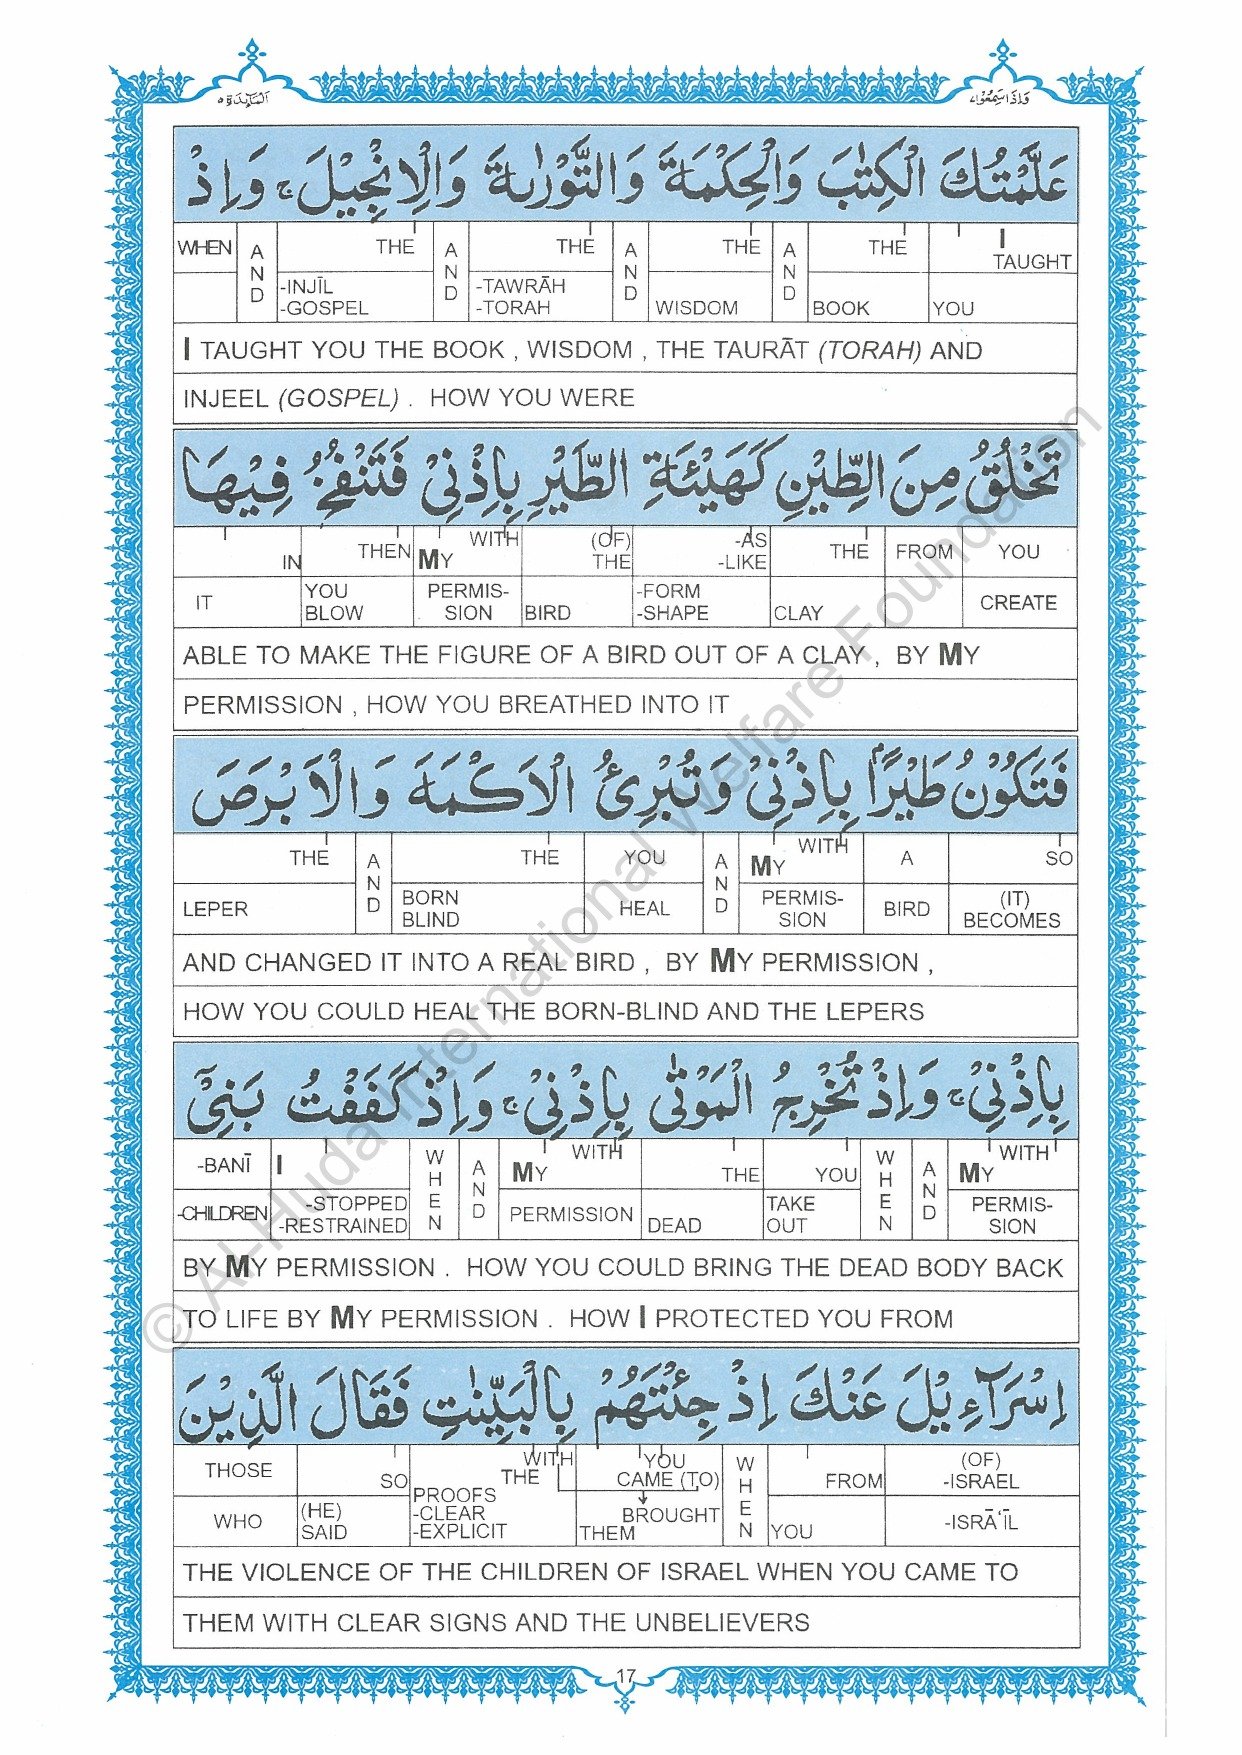 وَاِذَاسَمِعُوْا٧
اَلْمَآئِدَة٥
عَلَّمْتُكَ الْكِتٰبَ وَالْحِكْمَةَ وَالتَّوْرٰىةَ وَالْاِنْجِيْلَ ۚ وَاِذْ
WHEN AND THE AND THE AND THE AND THE I TAUGHT
-INJĪL -GOSPEL -TAWRĀH -TORAH WISDOM BOOK YOU
I TAUGHT YOU THE BOOK , WISDOM , THE TAURĀT (TORAH) AND
INJEEL (GOPSEL) . HOW YOU WERE
تَخْلُقُ مِنَ الطِّيْنِ كَهَيْئَةِ الطَّيْرِ بِاِذْنِيْ فَتَنْفُخُ فِيْهَا
IN THEN MY WITH (OF) THE -AS -LIKE THE FROM YOU
IT YOU BLOW PERMIS- SION BIRD -FORM -SHAPE CLAY CREATE
ABLE TO MAKE THE FIGURE OF A BIRD OUT OF A CLAY , BY MY
PERMISSION , HOW YOU BREATHED INTO IT
فَتَكُوْنُ طَيْرًاۢ بِاِذْنِيْ وَتُبْرِئُ الْاَكْمَهَ وَالْاَبْرَصَ
THE AND THE YOU AND MY WITH A SO
LEPER BORN BLIND HEAL PERMIS- SION BIRD (IT) BECOMES
AND CHANGED IT INTO A REAL BIRD , BY MY PERMISSION ,
HOW YOU COULD HEAL THE BORN-BLIND AND THE LEPERS
بِاِذْنِيْ ۚ وَاِذْ تُخْرِجُ الْمَوْتٰى بِاِذْنِيْ ۚ وَاِذْ كَفَفْتُ بَنِيْٓ
-BANĪ I WHEN AND MY WITH THE YOU WHEN AND MY WITH
-CHILDREN -STOPPED -RESTRAINED PERMISSION DEAD TAKE OUT PERMIS- SION
BY MY PERMISSION . HOW YOU COULD BRING THE DEAD BODY BACK
TO LIFE BY MY PERMISSION . HOW I PROTECTED YOU FROM
اِسْرَآءِيْلَ عَنْكَ اِذْ جِئْتَهُمْ بِالْبَيِّنٰتِ فَقَالَ الَّذِيْنَ
THOSE SO WITH THE YOU CAME (TO) WHEN FROM (OF) -ISRAEL
WHO (HE) SAID PROOFS -CLEAR -EXPLICIT BROUGHT THEM YOU -ISRĀ'ĪL
THE VIOLENCE OF THE CHILDREN OF ISRAEL WHEN YOU CAME TO
THEM WITH CLEAR SIGNS AND THE UNBELIEVERS
17
© Al-Huda International Welfare Foundation